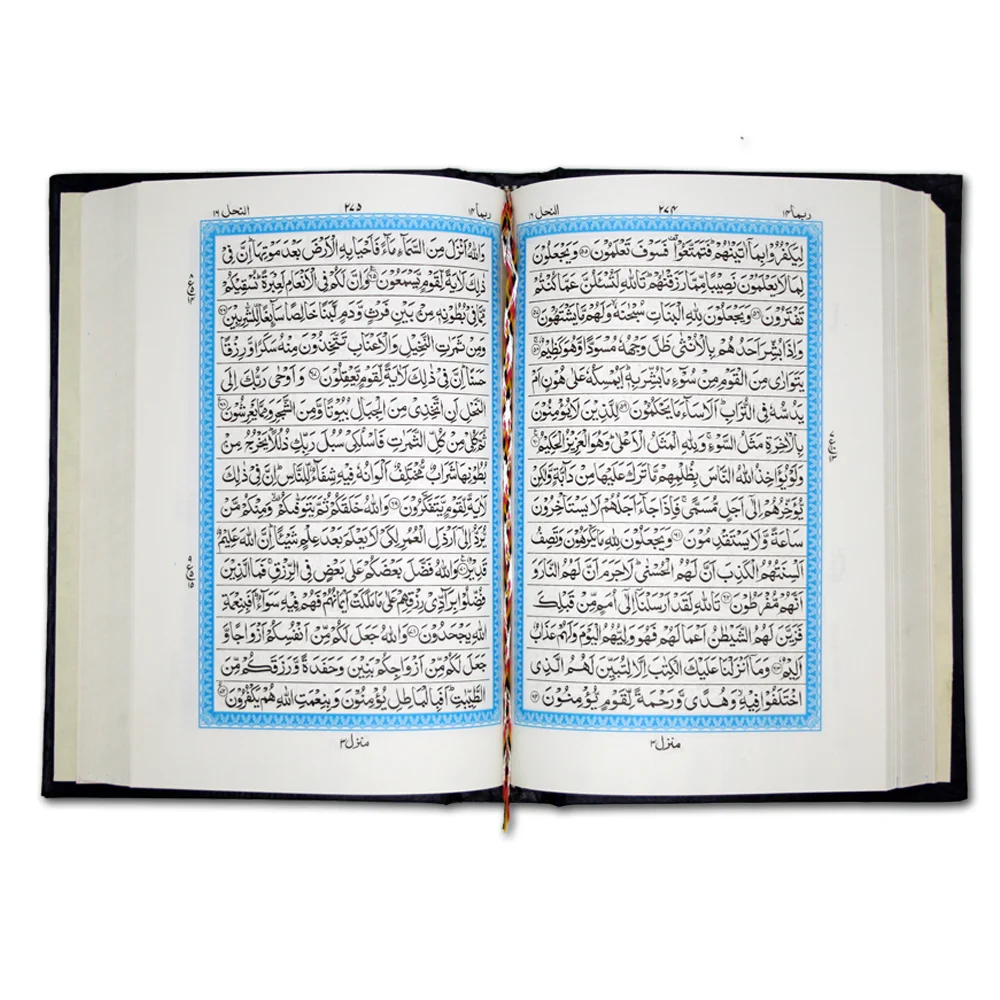 ربما ۱۴
۲۷۴
النحل ۱۶
لِيَكْفُرُوْا بِمَاۤ اٰتَيْنٰهُمْ ؕ فَتَمَتَّعُوْا ۫ فَسَوْفَ تَعْلَمُوْنَ ﴿۵۵﴾ وَ يَجْعَلُوْنَ
لِمَا لَا يَعْلَمُوْنَ نَصِيْبًا مِّمَّا رَزَقْنٰهُمْ ؕ تَاللّٰهِ لَتُسْـَٔلُنَّ عَمَّا كُنْتُمْ
تَفْتَرُوْنَ ﴿۵۶﴾ وَ يَجْعَلُوْنَ لِلّٰهِ الْبَنٰتِ سُبْحٰنَهٗ ۙ وَ لَهُمْ مَّا يَشْتَهُوْنَ ﴿۵۷﴾
وَ اِذَا بُشِّرَ اَحَدُهُمْ بِالْاُنْثٰى ظَلَّ وَجْهُهٗ مُسْوَدًّا وَّ هُوَ كَظِيْمٌ ﴿۵۸﴾
يَتَوَارٰى مِنَ الْقَوْمِ مِنْ سُوْٓءِ مَا بُشِّرَ بِهٖ ؕ اَيُمْسِكُهٗ عَلٰى هُوْنٍ اَمْ
يَدُسُّهٗ فِى التُّرَابِ ؕ اَلَا سَآءَ مَا يَحْكُمُوْنَ ﴿۵۹﴾ لِلَّذِيْنَ لَا يُؤْمِنُوْنَ
بِالْاٰخِرَةِ مَثَلُ السَّوْءِ ۚ وَ لِلّٰهِ الْمَثَلُ الْاَعْلٰى ؕ وَ هُوَ الْعَزِيْزُ الْحَكِيْمُ ﴿۶۰﴾
وَ لَوْ يُؤَاخِذُ اللّٰهُ النَّاسَ بِظُلْمِهِمْ مَّا تَرَكَ عَلَيْهَا مِنْ دَآبَّةٍ وَّ لٰكِنْ
يُّؤَخِّرُهُمْ اِلٰۤى اَجَلٍ مُّسَمًّى ۚ فَاِذَا جَآءَ اَجَلُهُمْ لَا يَسْتَاْخِرُوْنَ
سَاعَةً وَّ لَا يَسْتَقْدِمُوْنَ ﴿۶۱﴾ وَ يَجْعَلُوْنَ لِلّٰهِ مَا يَكْرَهُوْنَ وَ تَصِفُ
اَلْسِنَتُهُمُ الْكَذِبَ اَنَّ لَهُمُ الْحُسْنٰى ؕ لَا جَرَمَ اَنَّ لَهُمُ النَّارَ وَ
اَنَّهُمْ مُّفْرَطُوْنَ ﴿۶۲﴾ تَاللّٰهِ لَقَدْ اَرْسَلْنَاۤ اِلٰۤى اُمَمٍ مِّنْ قَبْلِكَ
فَزَيَّنَ لَهُمُ الشَّيْطٰنُ اَعْمَالَهُمْ فَهُوَ وَلِيُّهُمُ الْيَوْمَ وَ لَهُمْ عَذَابٌ
اَلِيْمٌ ﴿۶۳﴾ وَ مَاۤ اَنْزَلْنَا عَلَيْكَ الْكِتٰبَ اِلَّا لِتُبَيِّنَ لَهُمُ الَّذِى
اخْتَلَفُوْا فِيْهِ ۙ وَ هُدًى وَّ رَحْمَةً لِّقَوْمٍ يُّؤْمِنُوْنَ ﴿۶۴﴾
منزل ۳
ربما ۱۴
۲۷۵
النحل ۱۶
وَ اللّٰهُ اَنْزَلَ مِنَ السَّمَآءِ مَآءً فَاَحْيَا بِهِ الْاَرْضَ بَعْدَ مَوْتِهَا ؕ اِنَّ فِىْ
ذٰلِكَ لَاٰيَةً لِّقَوْمٍ يَّسْمَعُوْنَ ﴿۶۵﴾ وَ اِنَّ لَكُمْ فِى الْاَنْعَامِ لَعِبْرَةً ؕ نُسْقِيْكُمْ
مِّمَّا فِىْ بُطُوْنِهٖ مِنْۢ بَيْنِ فَرْثٍ وَّ دَمٍ لَّبَنًا خَالِصًا سَآئِغًا لِّلشّٰرِبِيْنَ ﴿۶۶﴾
وَ مِنْ ثَمَرٰتِ النَّخِيْلِ وَ الْاَعْنَابِ تَتَّخِذُوْنَ مِنْهُ سَكَرًا وَّ رِزْقًا
حَسَنًا ؕ اِنَّ فِىْ ذٰلِكَ لَاٰيَةً لِّقَوْمٍ يَّعْقِلُوْنَ ﴿۶۷﴾ وَ اَوْحٰى رَبُّكَ اِلَى
النَّحْلِ اَنِ اتَّخِذِىْ مِنَ الْجِبَالِ بُيُوْتًا وَّ مِنَ الشَّجَرِ وَ مِمَّا يَعْرِشُوْنَ ﴿۶۸﴾
ثُمَّ كُلِىْ مِنْ كُلِّ الثَّمَرٰتِ فَاسْلُكِىْ سُبُلَ رَبِّكِ ذُلُلًا ؕ يَخْرُجُ مِنْۢ
بُطُوْنِهَا شَرَابٌ مُّخْتَلِفٌ اَلْوَانُهٗ فِيْهِ شِفَآءٌ لِّلنَّاسِ ؕ اِنَّ فِىْ ذٰلِكَ
لَاٰيَةً لِّقَوْمٍ يَّتَفَكَّرُوْنَ ﴿۶۹﴾ وَ اللّٰهُ خَلَقَكُمْ ثُمَّ يَتَوَفّٰىكُمْ ۙ وَ مِنْكُمْ مَّنْ
يُّرَدُّ اِلٰۤى اَرْذَلِ الْعُمُرِ لِكَىْ لَا يَعْلَمَ بَعْدَ عِلْمٍ شَيْـًٔا ؕ اِنَّ اللّٰهَ عَلِيْمٌ
قَدِيْرٌ ﴿۷۰﴾ وَ اللّٰهُ فَضَّلَ بَعْضَكُمْ عَلٰى بَعْضٍ فِى الرِّزْقِ ۚ فَمَا الَّذِيْنَ
فُضِّلُوْا بِرَآدِّىْ رِزْقِهِمْ عَلٰى مَا مَلَكَتْ اَيْمَانُهُمْ فَهُمْ فِيْهِ سَوَآءٌ ؕ اَفَبِنِعْمَةِ
اللّٰهِ يَجْحَدُوْنَ ﴿۷۱﴾ وَ اللّٰهُ جَعَلَ لَكُمْ مِّنْ اَنْفُسِكُمْ اَزْوَاجًا وَّ
جَعَلَ لَكُمْ مِّنْ اَزْوَاجِكُمْ بَنِيْنَ وَ حَفَدَةً وَّ رَزَقَكُمْ مِّنَ
الطَّيِّبٰتِ ؕ اَفَبِالْبَاطِلِ يُؤْمِنُوْنَ وَ بِنِعْمَتِ اللّٰهِ هُمْ يَكْفُرُوْنَ ﴿۷۲﴾
منزل ۳